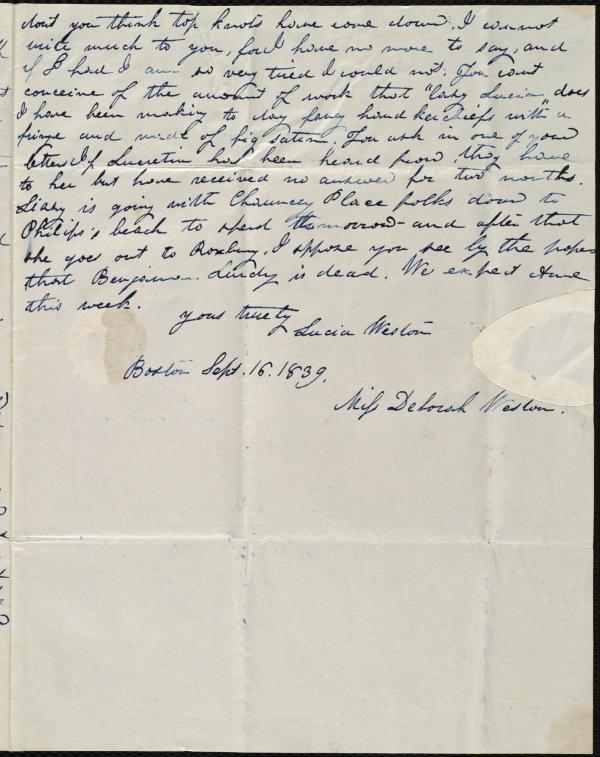 dont you think top knots have come down. I cannot
write much to you, for I have no more to say, and
if I had I am so very tired I could not. You cant
conceive of the amount of work that "lazy Lucia" does
I have been making to day fancy hand kerchiefs with a
fringe and made of fig satin. You ask in one of your
letters if Lucretia had been heard from, they have
to her but have received no answer for two months.
Lizzy is going with Chauncey Place folks down to
Philips's beach to spend tomorrow and after that
she goes out to Roxbury. I suppose you see by the papers
that Benjamin Lundy is dead. We expect Anne
this week.
yours truely
Lucia Weston
Boston Sept. 16. 1839.
Miss Deborah Weston.